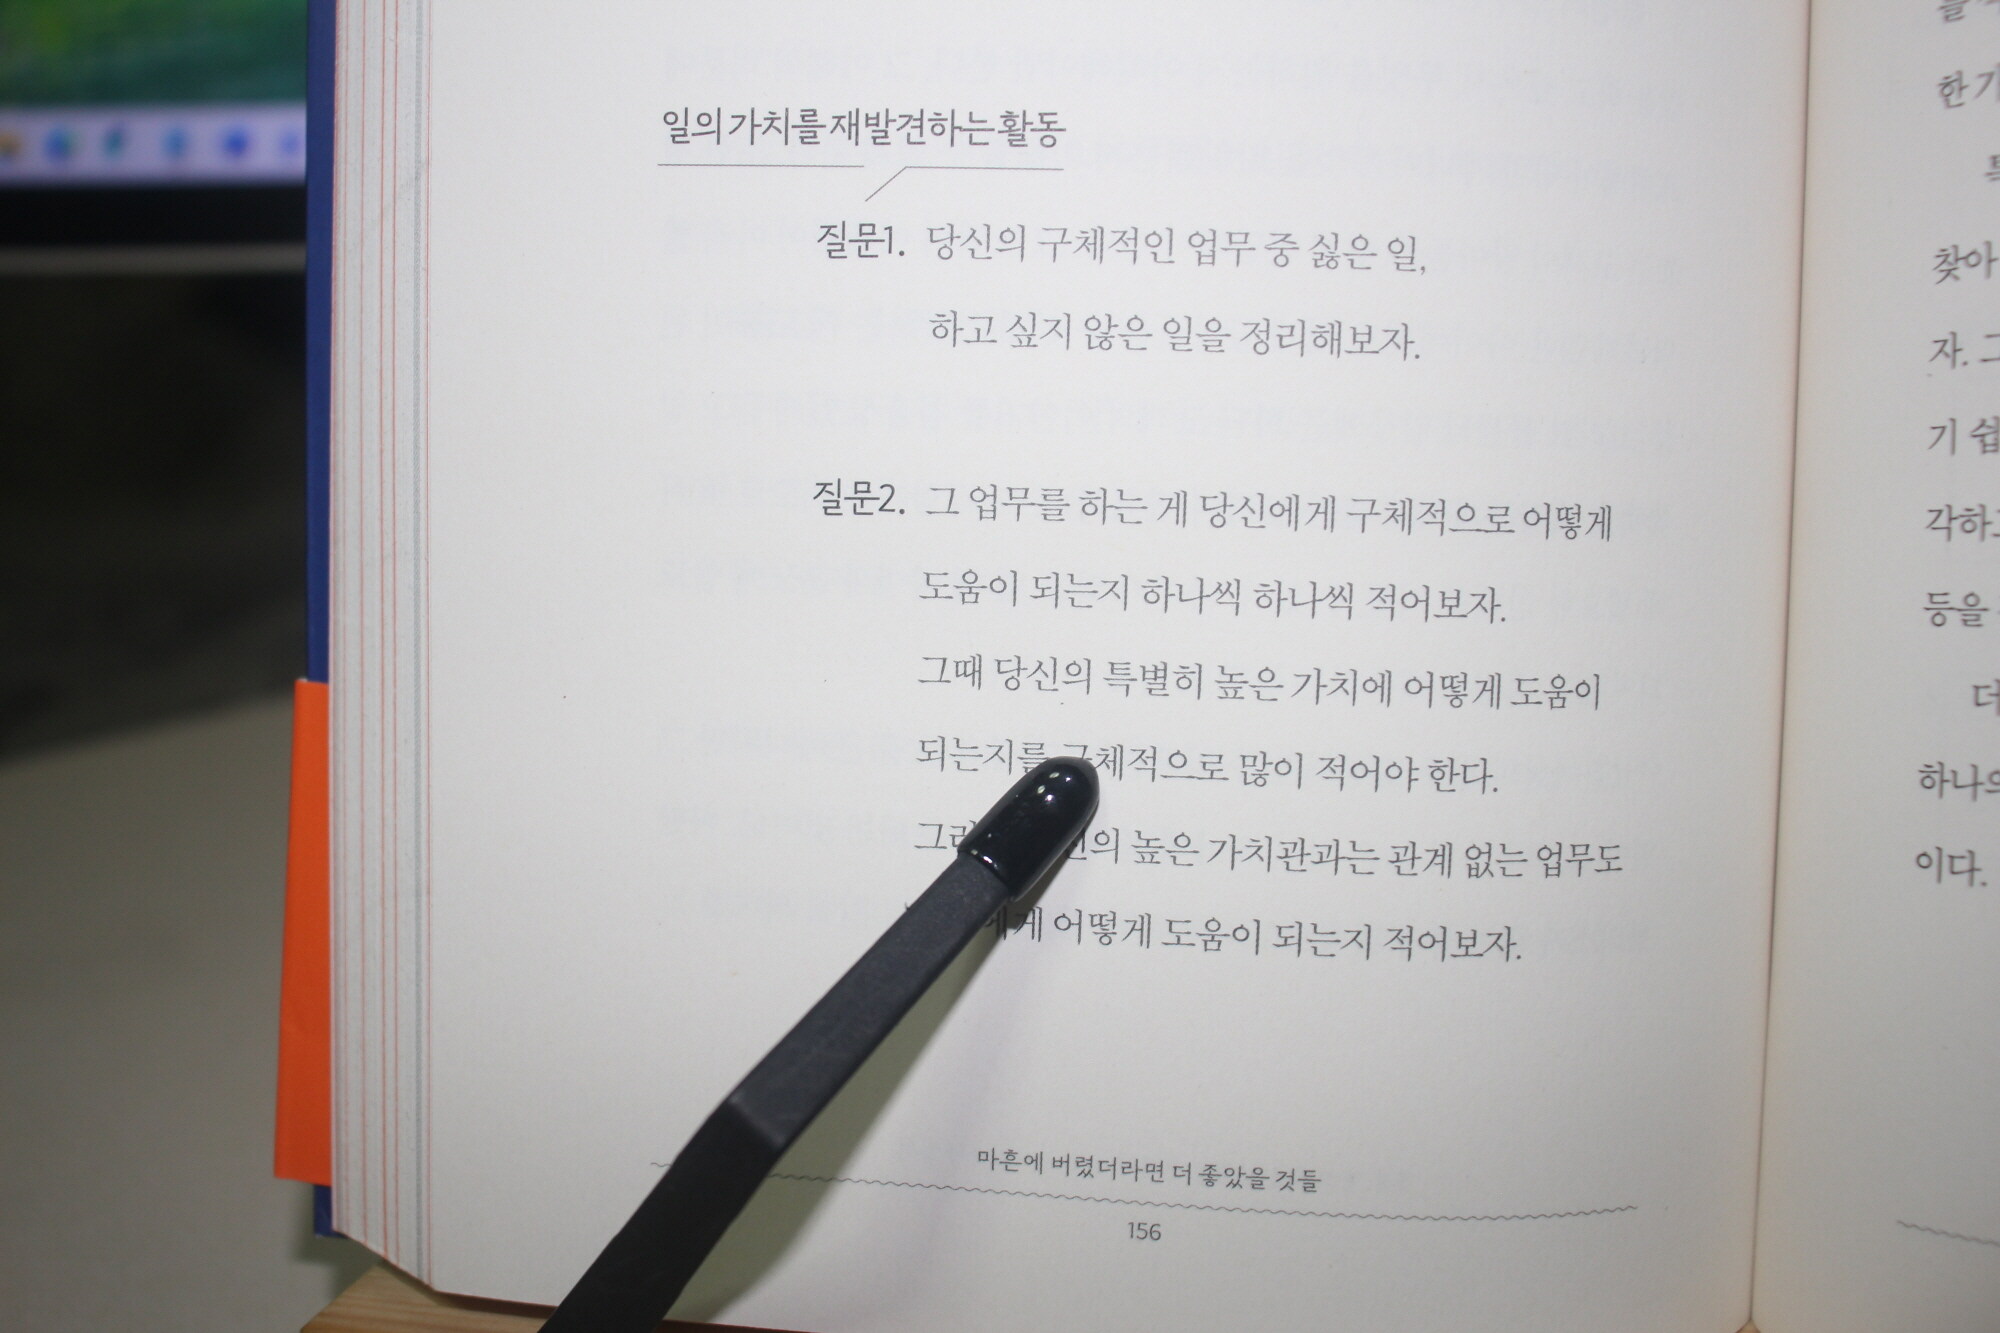 일의 가치를 재발견하는 활동
질문1. 당신의 구체적인 업무 중 싫은 일,
하고 싶지 않은 일을 정리해보자.
질문2. 그 업무를 하는 게 당신에게 구체적으로 어떻게
도움이 되는지 하나씩 하나씩 적어보자.
그때 당신의 특별히 높은 가치에 어떻게 도움이
되는지를 구체적으로 많이 적어야 한다.
높은 가치관과는 관계 없는 업무도
어떻게 도움이 되는지 적어보자.
마흔에 버렸더라면 더 좋았을 것들
156
한
찾아
자. 그
기 쉽
각하고
등을
더
하나의
이다.